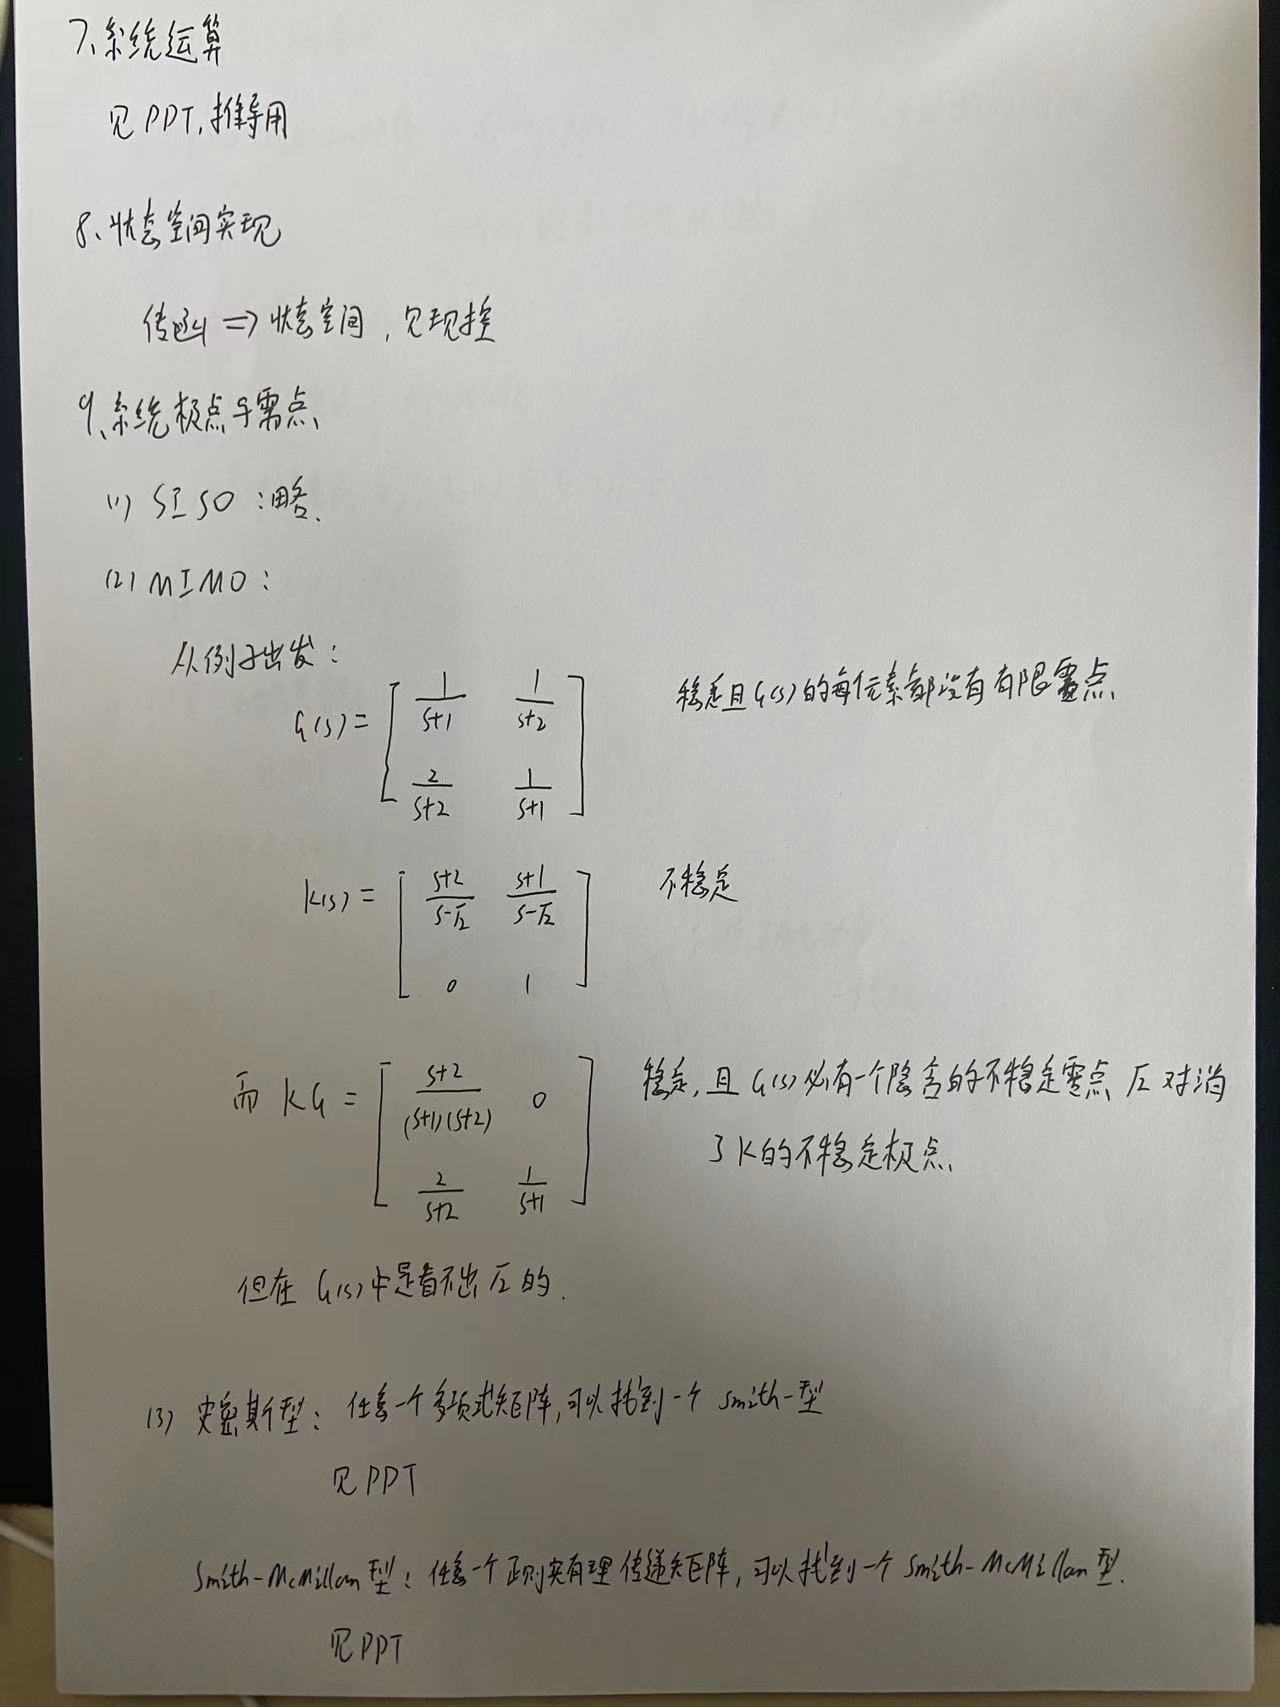 7、系统运算
见PPT,推导用
8、状态空间实现
传函 => 状态空间,见现控
9、系统极点与零点
(1) SISO:略.
(2) MIMO:
从例子出发:
G(s) = [ 1/(s+1)  1/(s+2) ; 2/(s+2)  1/(s+1) ] 稳定且G(s)的每位元素都没有有限零点
K(s) = [ (s+2)/(s-√2)  (s+1)/(s-√2) ; 0  1 ] 不稳定
而 KG = [ (s+2)/((s+1)(s+2))  0 ; 2/(s+2)  1/(s+1) ] 稳定,且G(s)必有一个隐含的不稳定零点√2对消
了K的不稳定极点
但在G(s)中是看不出√2的.
(3) 史密斯型:任意一个多项式矩阵,可以找到一个 smith-型
见PPT
Smith-McMillan型:任意一个正则实有理传递矩阵,可以找到一个Smith-McMillan型.
见PPT